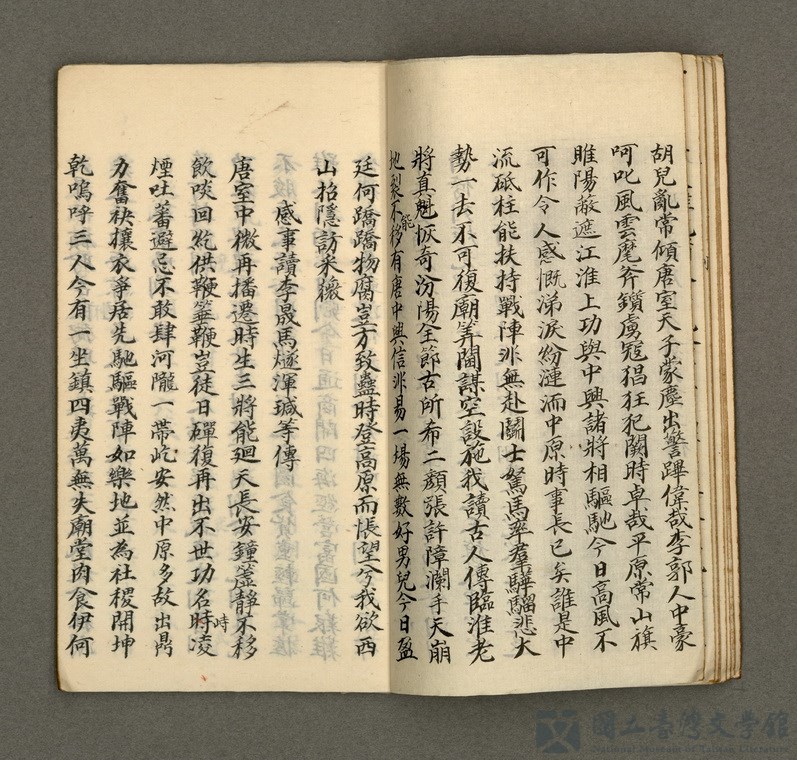 胡兒亂常傾唐室天子蒙塵出警蹕偉哉李郭人中豪
呵叱風雲麾斧鑕虜寇猖狂犯闕時卓哉平原常山旗
睢陽敵遮江淮上功與中興諸將相驅馳今日高風不
可作令人感慨涕淚紛漣洏中原時事長已矣誰是中
流砥柱能扶持戰陣非無赴鬭士駑馬率羣驊騮悲大
勢一去不可復廟筭閫謀空設施我讀古人傳臨淮老
將真魁恢奇汾陽全節古所希二顏張許障瀾手天崩
地裂不能移有唐中興信非易一場無數好男兒今日盈
廷何蹻蹻物腐豈方致蠱時登高原而悵望兮我欲西
山招隱訪采薇
感事讀李晟馬燧渾瑊等傳
唐室中微再播遷時生三將能廻天長安鐘簴靜不移
飲啖回紇供鞭箠鞭豈徒日磾復再出不世功名時凌
時
煙吐蕃避忌不敢肆河隴一帶屹安然中原多故出鼎
力奮袂攘衣爭居先馳驅戰陣如樂地並為社稷開坤
乾嗚呼三人今有一坐鎮四夷萬無失廟堂肉食伊何
國立臺灣文學館
National Museum of Taiwan Literature